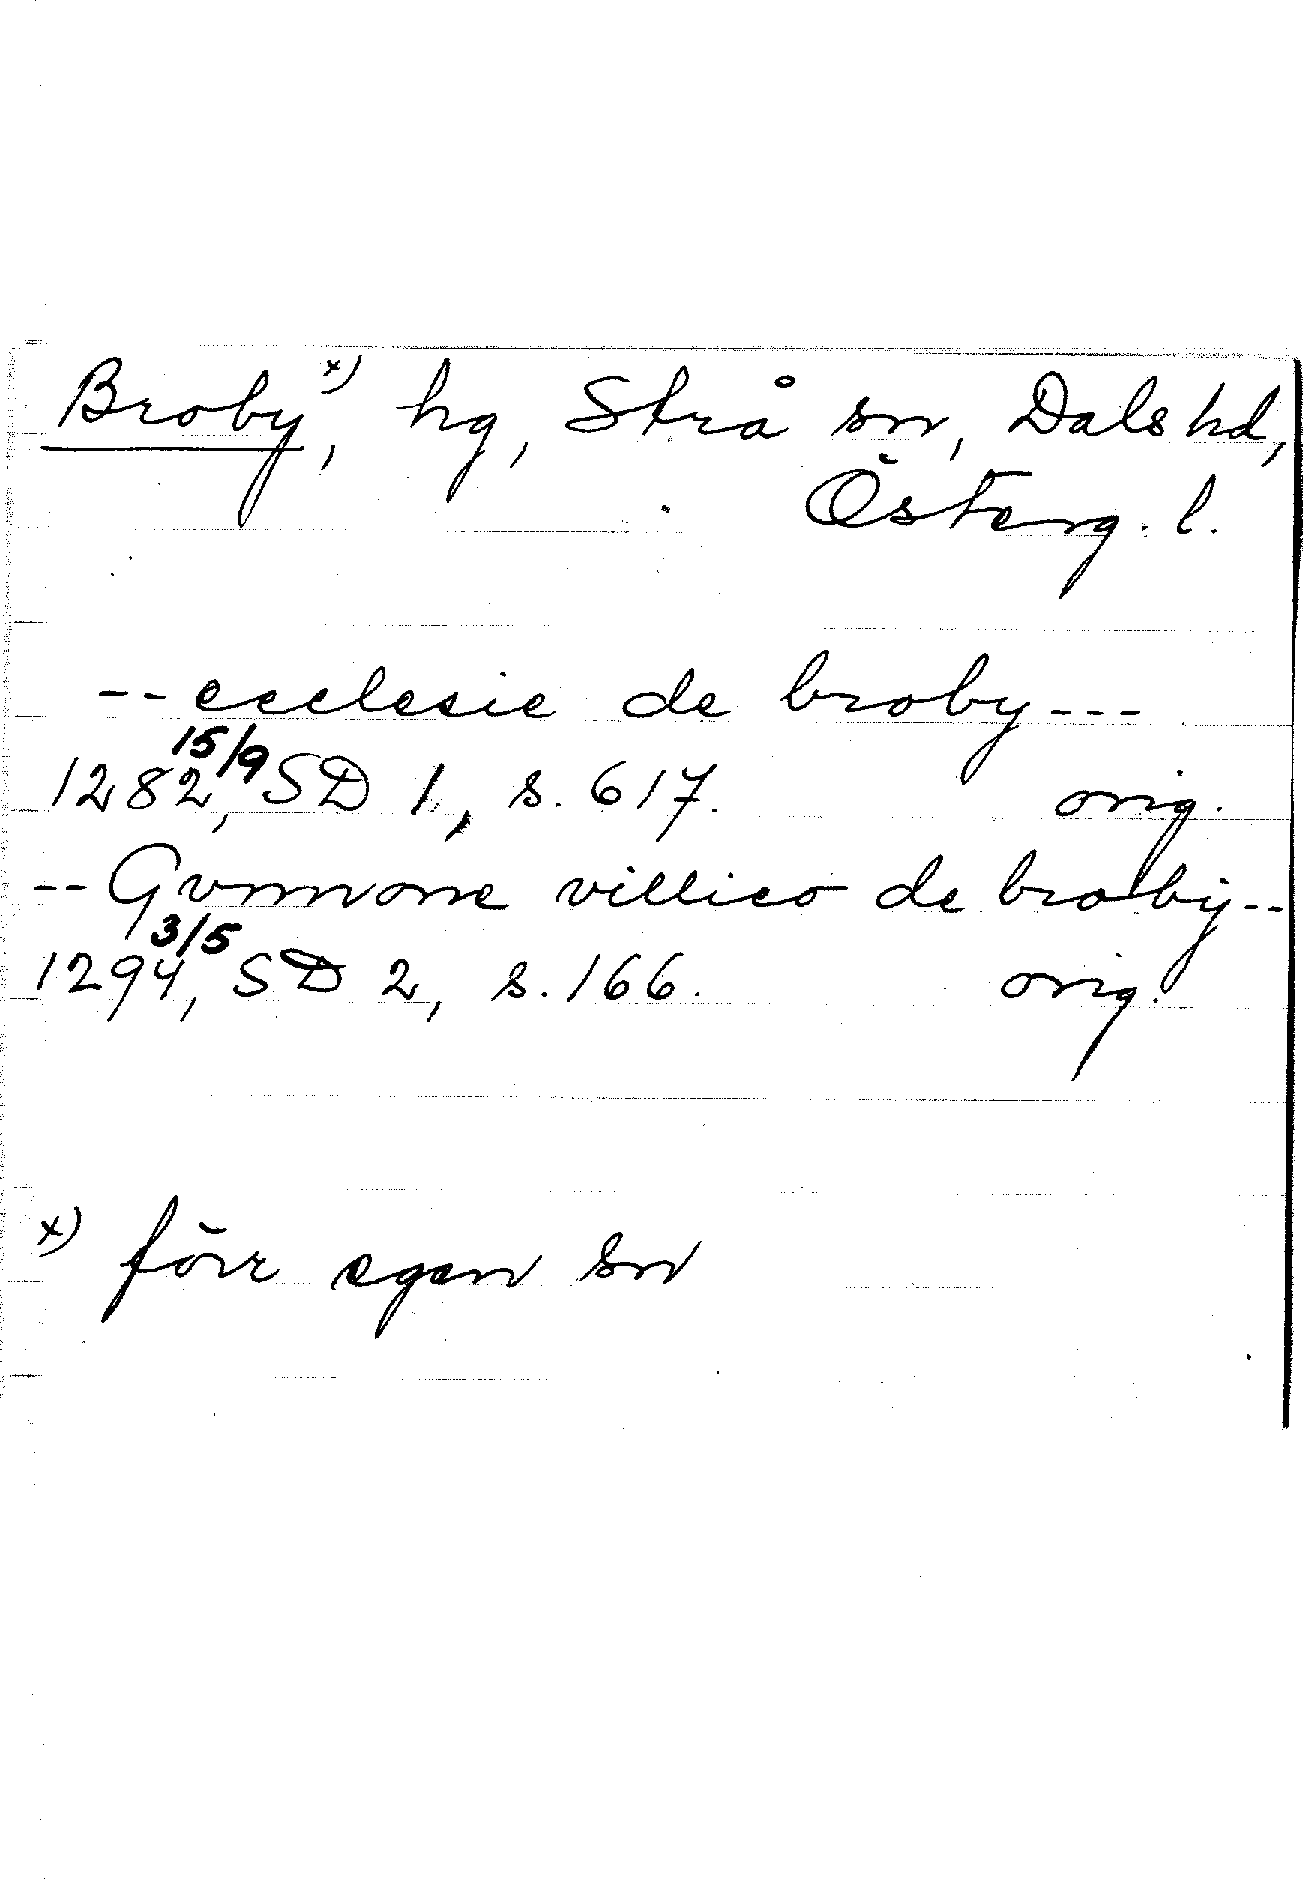 Broby x), hg, Strå sn, Dals hd,
Österg. l.
-- ecclesie de broby ---
1282 15/9, SD 1, s. 617. orig.
-- Gvnnone villico de broby --
1294 3/5, SD 2, s. 166. orig.
x) förr egen sn